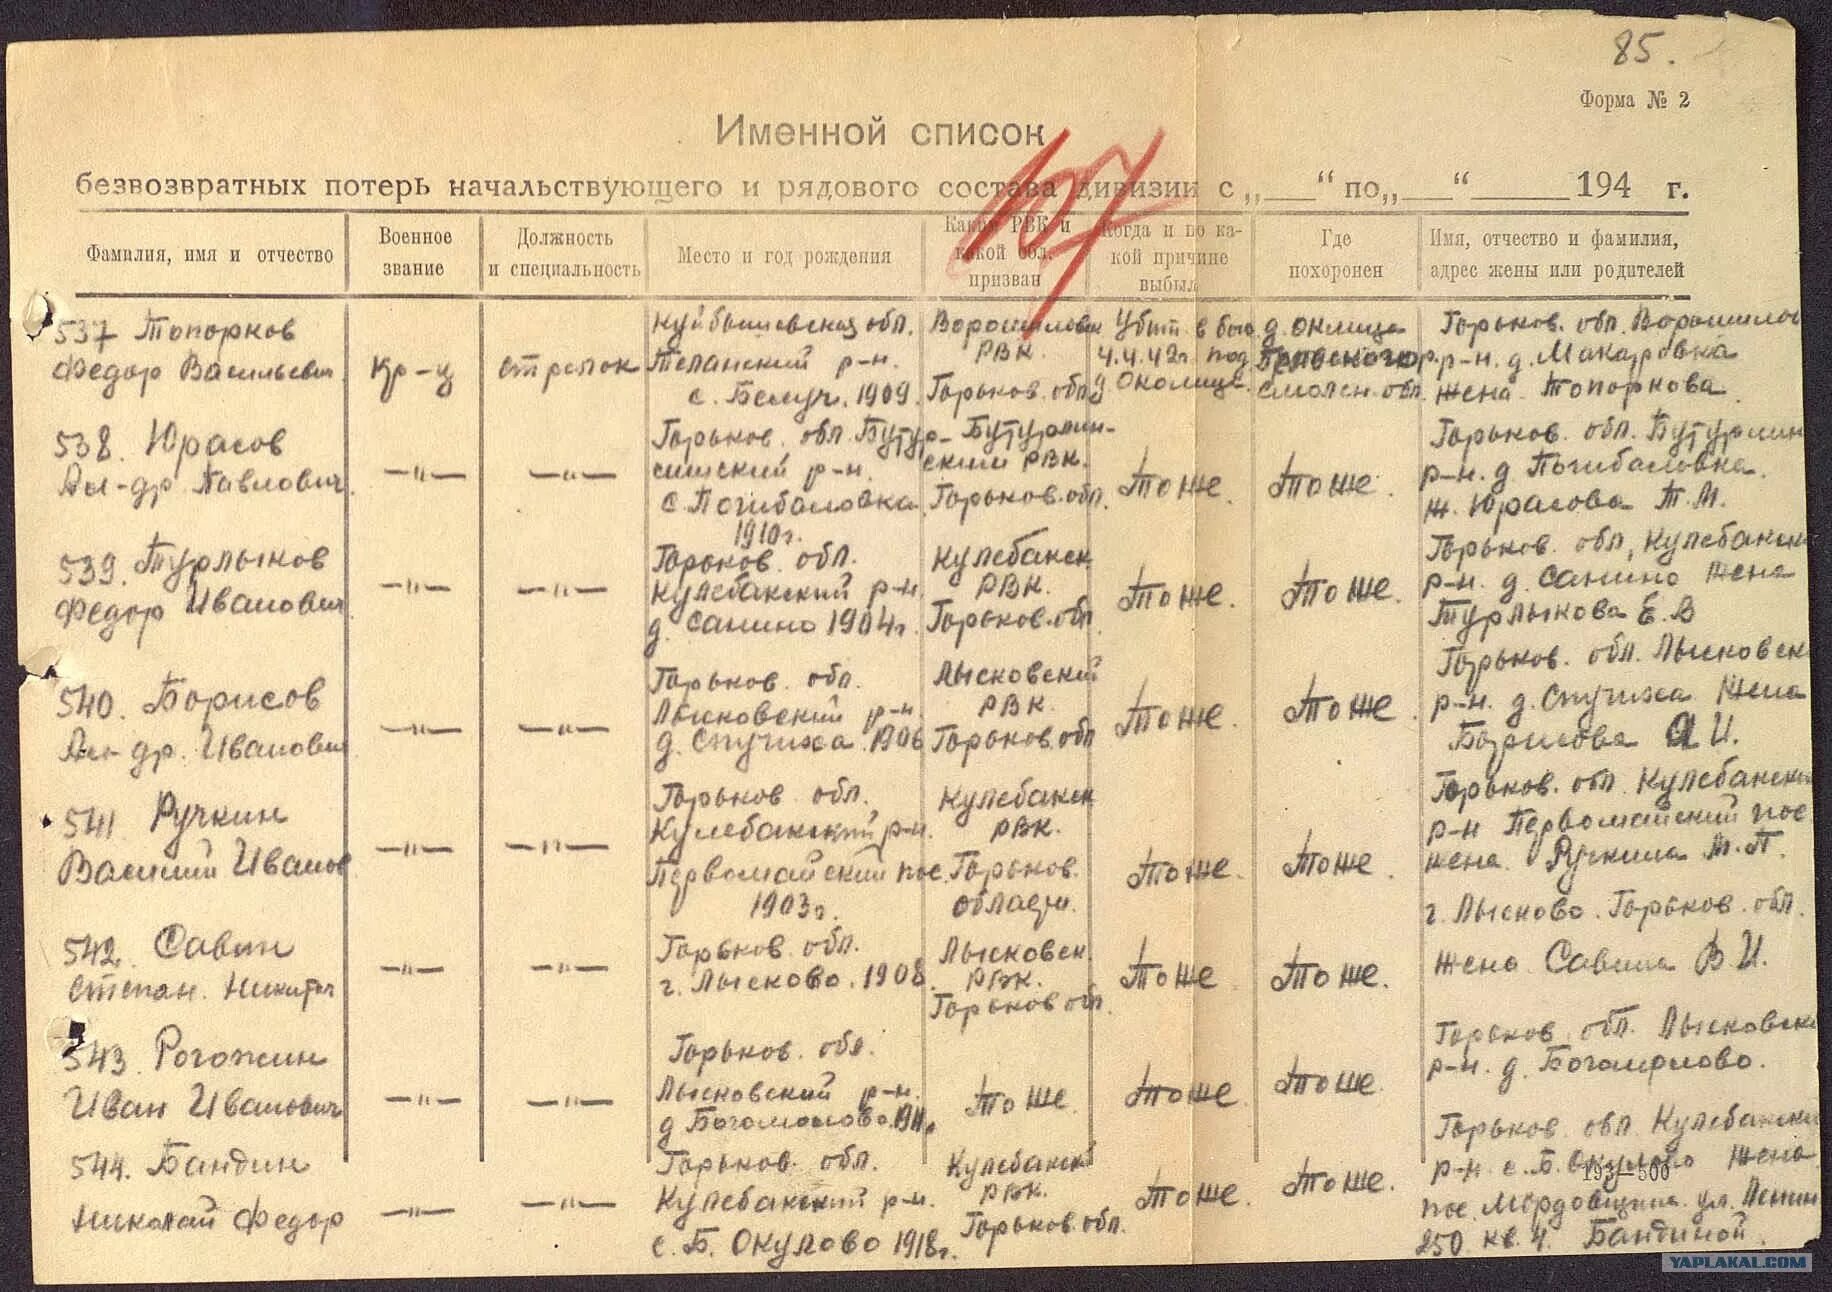 85.
Форма № 2
Именной список
107
безвозвратных потерь начальствующего и рядового состава дивизии с „___“ по „___“ ______ 194 г.
Фамилия, имя и отчество
Военное звание
Должность и специальность
Место и год рождения
Каким РВК и какой обл. призван
Когда и по какой причине выбыл
Где похоронен
Имя, отчество и фамилия, адрес жены или родителей
537 Топорков
Федор Васильевич
Кр-ц
стрелок
Куйбышевская обл.
р-н.
1909.
Ворошиловск
РВК.
Горьков. обл.
Убит в бою
4.4.42г. под
д. Околице
смолен. обл.
Горьков. обл. Ворошилов
р-н. д. Макаровка
жена Топоркова
538. Юрасов
Ал-др. Павлович
—"—
—"—
Горьков. обл. Бутур-
линский р-н.
с. Погибаловка
1910г.
Бутурлин-
ский РВК.
Горьков. обл.
То же.
То же.
Горьков. обл. Бутурлин
р-н. д Погибаловка.
ж. Юрасова Т. М.
539. Турлыков
Федор Иванович
—"—
—"—
Горьков. обл.
Кулебакский р-н.
д. Санино 1904г.
Кулебакск
РВК.
Горьков. обл
То же.
То же.
Горьков. обл, Кулебакск
р-н. д. Санино жена
Турлыкова Е. В
540. Борисов
Ал-др. Иванович
—"—
—"—
Горьков. обл.
Лысковский р-н.
д. 1906
Лысковский
РВК.
Горьков. обл
То же.
То же.
Горьков. обл. Лысковск
р-н. д. жена
Борисова А И.
541 Ручкин
Василий Иванов
—"—
—"—
Горьков обл.
Кулебакский р-н.
Первомайский пос.
1903г.
Кулебакск
РВК.
Горьков.
области.
То же.
То же.
Горьков. обл Кулебакский
р-н Первомайский пос
жена Ручкина М. П.
542. Савин
Степан. Никитич
—"—
—"—
Горьков. обл.
г. Лысково. 1908
Лысковск.
РВК.
Горьков обл
То же.
То же.
г. Лысково. Горьков. обл.
жена Савина В И.
543. Рогожин
Иван Иванович
—"—
—"—
Горьков. обл.
Лысковский р-н.
д Богомолово
То же
То же.
То же.
Горьков. обл. Лысковск
р-н. д. Богомолово.
544. Бандин
Николай Федор
—"—
—"—
Горьков. обл.
Кулебакский р-н.
с. Б. Окулово 1918г.
Кулебакск
РВК.
Горьков. обл.
То же.
То же.
Горьков обл Кулебакск
р-н с. Б. Окулово жена
193—500
пос. Мордовщина ул. Ленин
250 кв. 4. Бандиной.
YAPLAKAL.COM